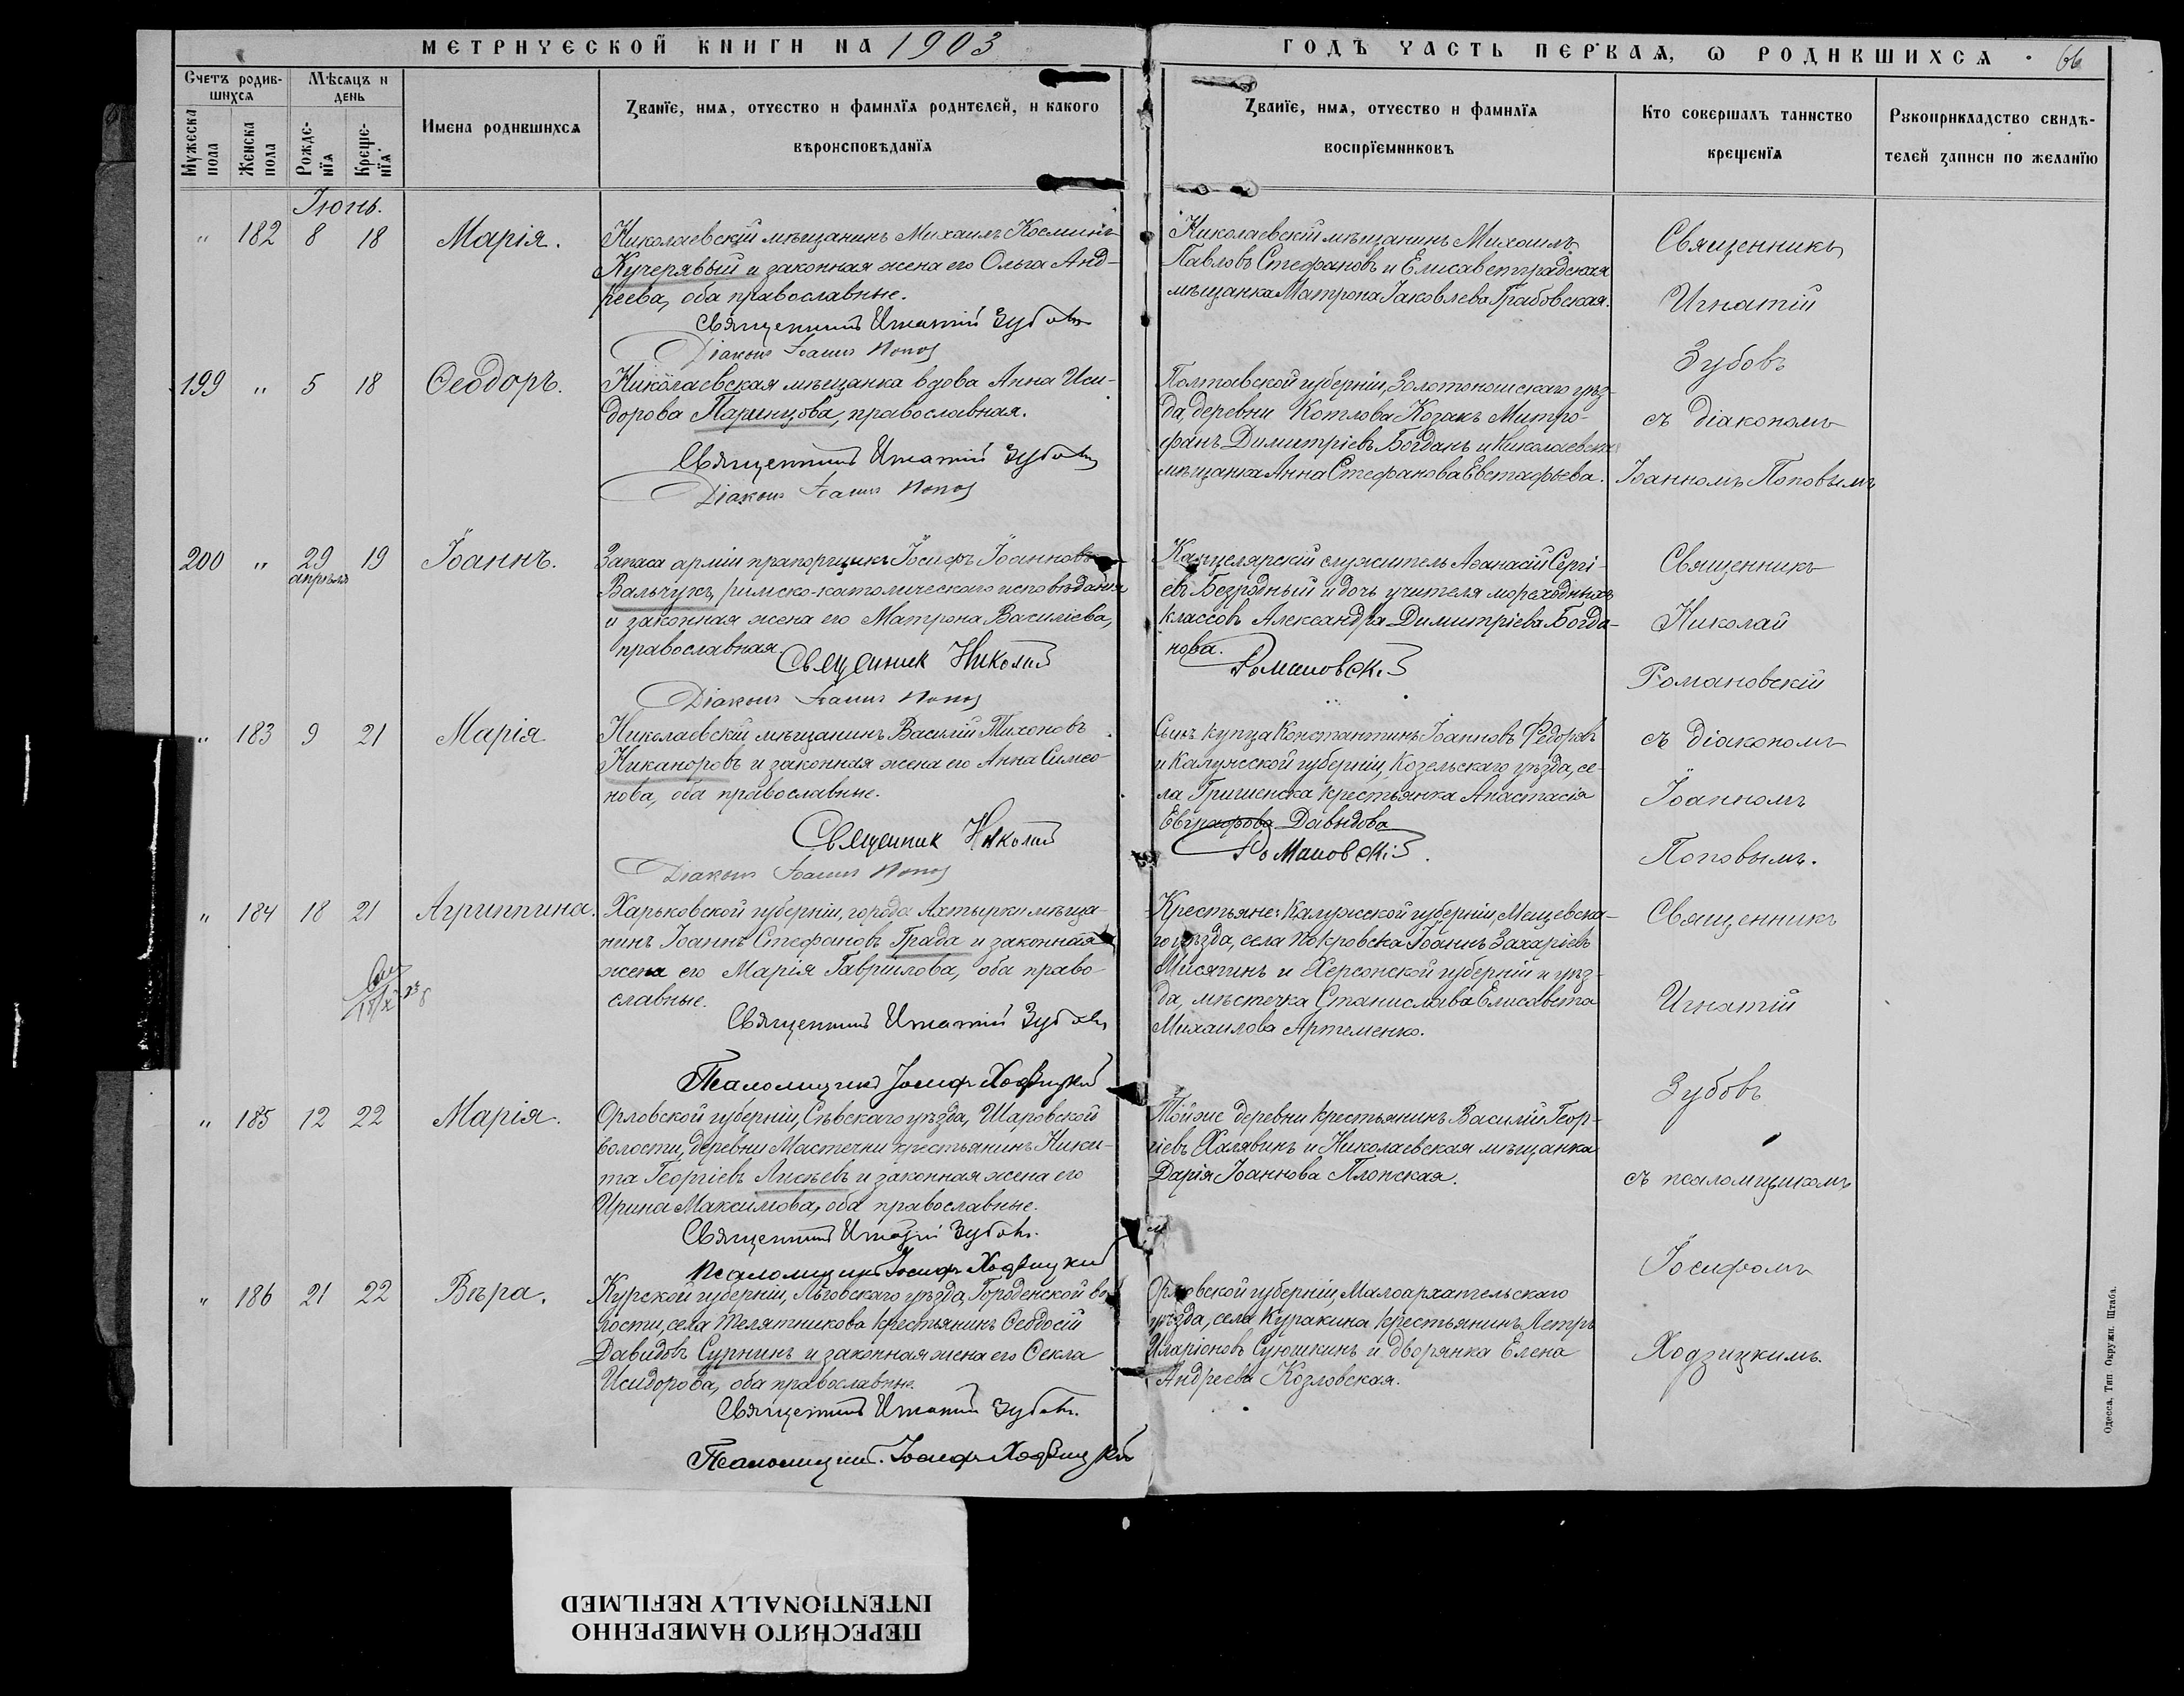 МЕТРИЧЕСКОЙ КНИГИ НА 1903
ГОДЪ ЧАСТЬ ПЕРВАЯ, Ѡ РОДИВШИХСЯ . 66
Счетъ родив-
шихся
Мѣсяцъ и
день
Мужеска
пола
Женска
пола
Рожде-
нїя
Креще-
нїя
Имена родившихся
Званїе, имя, отчество и фамилїя родителей, и какого
вѣроисповѣданїя
Званїе, имя, отчество и фамилїя
воспрїемниковъ
Кто совершалъ таинство
крещенїя
Рукоприкладство свидѣ-
телей записи по желанїю
Іюнь.
" 182 8 18 Марія.
Николаевскій мѣщанинъ Михаилъ Косминъ
Кучерявый и законная жена его Ольга Анд-
реева, оба православные.
Священникъ Игнатій Зубовъ
Діаконъ Іоаннъ Попов
Николаевскій мѣщанинъ Михаилъ
Павловъ Стефановъ и Елисаветградская
мѣщанка Матрона Іаковлева Грабовская.
Священникъ
Игнатій
Зубовъ
съ діакономъ
Іоанномъ Поповымъ
199 " 5 18 Ѳеодоръ.
Николаевская мѣщанка вдова Анна Иси-
дорова Паринцова, православная.
Священникъ Игнатій Зубовъ
Діаконъ Іоаннъ Попов
Полтавской губерніи, Золотоношскаго уѣз-
да, деревни Котлова Козакъ Митро-
фанъ Димитріевъ Богданъ и Николаевская
мѣщанка Анна Стефанова Евстафьева.
200 " 29 19 Іоаннъ.
апрѣля
Запаса арміи прапорщикъ Іосифъ Іоанновъ
Вальчукъ, римско-католическаго исповѣданія
и законная жена его Матрона Василіева,
православная.
Священник Николай
Діаконъ Іоаннъ Попов
Канцелярскій служитель Аѳанасій Сергі-
евъ Безродный и дочь учителя мореходныхъ
классовъ Александра Димитріева Богда-
нова.
Романовскій
Священникъ
Николай
Романовскій
съ діакономъ
Іоанномъ
Поповымъ.
" 183 9 21 Марія
Николаевскій мѣщанинъ Василій Тихоновъ
Никаноровъ и законная жена его Анна Симео-
нова, оба православные.
Священник Николай
Діаконъ Іоаннъ Попов
Сынъ купца Константинъ Іоанновъ Федоровъ
и Калужской губерніи, Козельскаго уѣзда, се-
ла Гришенска крестьянка Анастасія
Евграфова Давыдова
Романовскій.
" 184 18 21 Агриппина.
Харьковской губерніи, города Ахтырки мѣща-
нинъ Іоаннъ Стефановъ Града и законная
жена его Марія Гавриилова, оба право-
славные.
Священникъ Игнатій Зубовъ
Псаломщикъ Іосифъ Ходзицкій
Крестьяне: Калужской губерніи, Мещевска-
го уѣзда, села Покровска Іоаннъ Захаріевъ
Мисягинъ и Херсонской губерніи и уѣз-
да, мѣстечка Станислава Елисавета
Михаилова Артеменко.
Священникъ
Игнатій
Зубовъ
съ псаломщикомъ
Іосифомъ
Ходзицкимъ.
" 185 12 22 Марія.
Орловской губерніи, Сѣвскаго уѣзда, Шаровской
волости, деревни Мастечни крестьянинъ Ники-
та Георгіевъ Лисѣевъ и законная жена его
Ирина Максимова, оба православные.
Священникъ Игнатій Зубовъ.
Псаломщикъ Іосифъ Ходзицкій
Той же деревни крестьянинъ Василій Геор-
гіевъ Халявинъ и Николаевская мѣщанка
Дарія Іоаннова Плопская.
" 186 21 22 Вѣра.
Курской губерніи, Льговскаго уѣзда, Городенской во-
лости, села Телятникова крестьянинъ Ѳеодосій
Давидовъ Сурнинъ и законная жена его Ѳекла
Исидорова, оба православные.
Священникъ Игнатій Зубовъ.
Псаломщикъ. Іосифъ Ходзицкій
Орловской губерніи, Малоархангельскаго
уѣзда, села Куракина крестьянинъ Петръ
Иларіоновъ Суюшкинъ и дворянка Елена
Андреева Козловская.
Одесса, Тип Окружн. Штаба.
ПЕРЕСНЯТО НАМЕРЕННО
INTENTIONALLY REFILMED